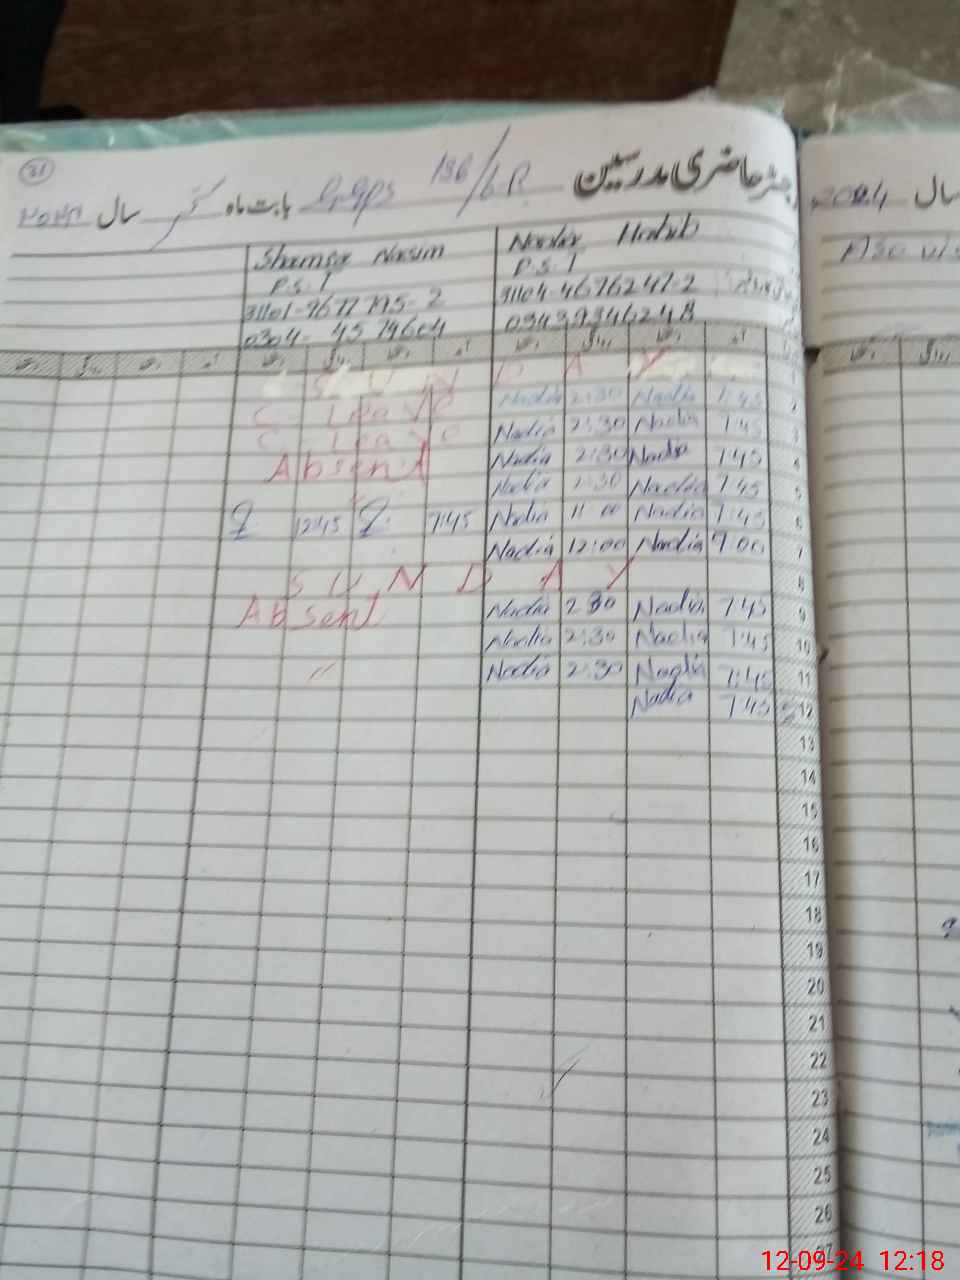 31
رجسٹر حاضری مدرسین 136/6.R GGPS بابت ماہ ستمبر سال ۲۰۲۴
سال 2024
Nadia Habib Shamsa Nasim
P.S.T P.S.T
31104-4676247-2
0304-4579604
آمد دستخط روانگی دستخط آمد دستخط روانگی دستخط آمد دستخط روانگی دستخط
S U N D A Y
2 7:45 Nadia 2:30 Nadia C. Leave
3 7:45 Nadia 2:30 Nadia C. Leave
4 7:45 Nadia 2:30 Nadia Absent
5 7:45 Nadia 2:30 Nadia
6 7:45 Nadia 11:00 Nadia 7:45 12:45
7 7:00 Nadia 12:00 Nadia
8 S U N D A Y
9 7:45 Nadia 2:30 Nadia Absent
10 7:45 Nadia 2:30 Nadia
11 7:45 Nadia 2:30 Nadia 〃
12 7:45 Nadia
13
14
15
16
17
18
19
20
21
22
23
24
25
26
27
12-09-24 12:18